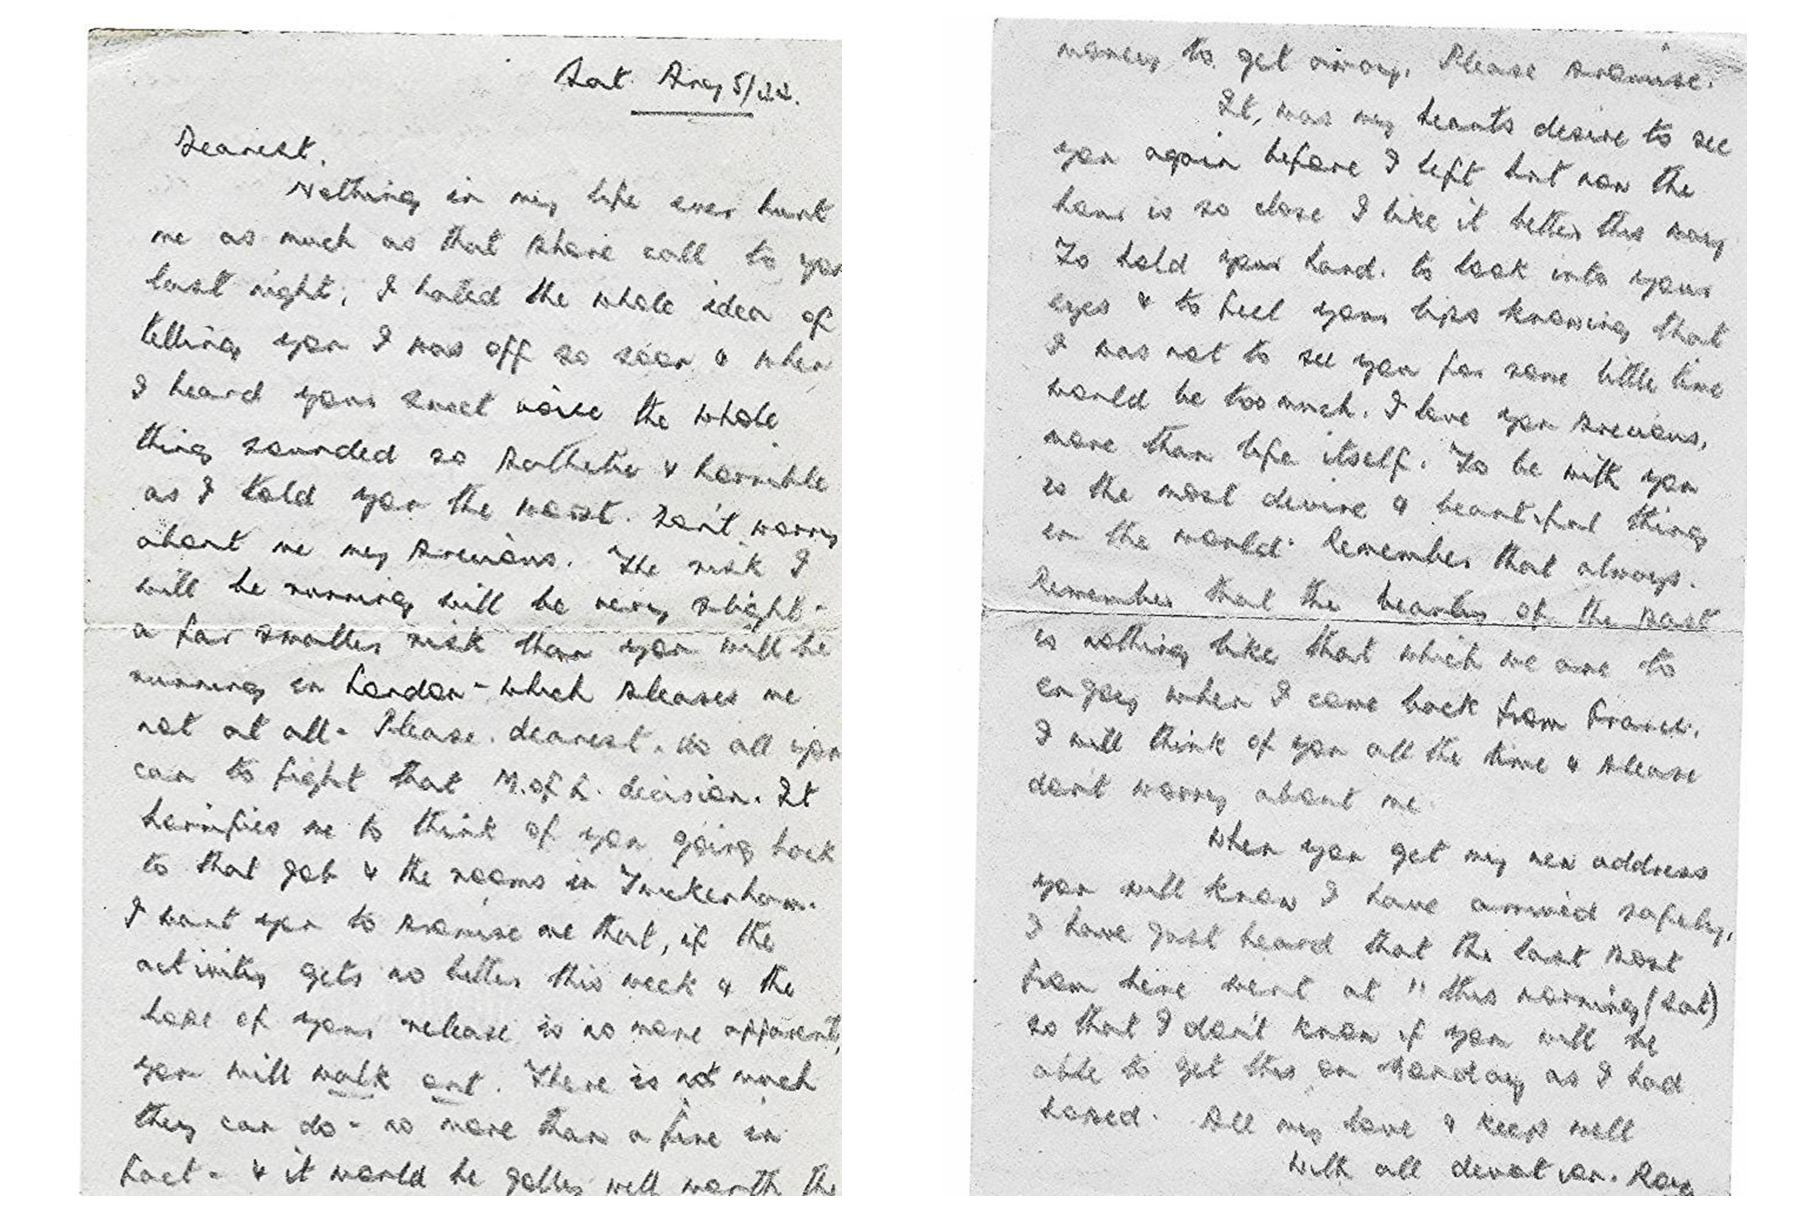 Sat. Aug 5/44.
Dearest.
Nothing in my life ever hurt
me as much as that phone call to you
last night. I hated the whole idea of
telling you I was off so soon & when
I heard your sweet voice the whole
thing sounded so pathetic & horrible
as I told you the worst. Don't worry
about me my precious. The risk I
will be running will be very slight -
a far smaller risk than you will be
running in London - which pleases me
not at all - Please. dearest. do all you
can to fight that M. of L. decision. It
horrifies me to think of you going back
to that job & the rooms in Twickenham.
I want you to promise me that, if the
activity gets no better this week & the
hope of your release is no more apparent,
you will walk out. There is not much
they can do - no more than a fine in
fact - & it would be jolly well worth the
money to get away. Please promise.
It, was my hearts desire to see
you again before I left but now the
hour is so close I like it better this way
To hold your hand. to look into your
eyes & to feel your lips knowing that
I was not to see you for some little time
would be too much. I love you precious,
more than life itself. To be with you
is the most divine & beautiful thing
in the world. Remember that always.
Remember that the beauty of the past
is nothing like that which we are to
enjoy when I come back from France.
I will think of you all the time & please
don't worry about me.
When you get my new address
you will know I have arrived safely,
I have just heard that the last post
from here went at 11 this morning (Sat)
so that I don't know if you will be
able to get this on Monday as I had
hoped. All my love & keep well
With all devotion. Roy